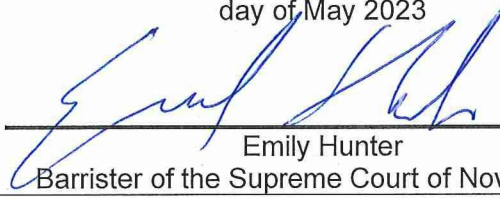 day of May 2023
Emily Hunter
Barrister of the Supreme Court of Nov